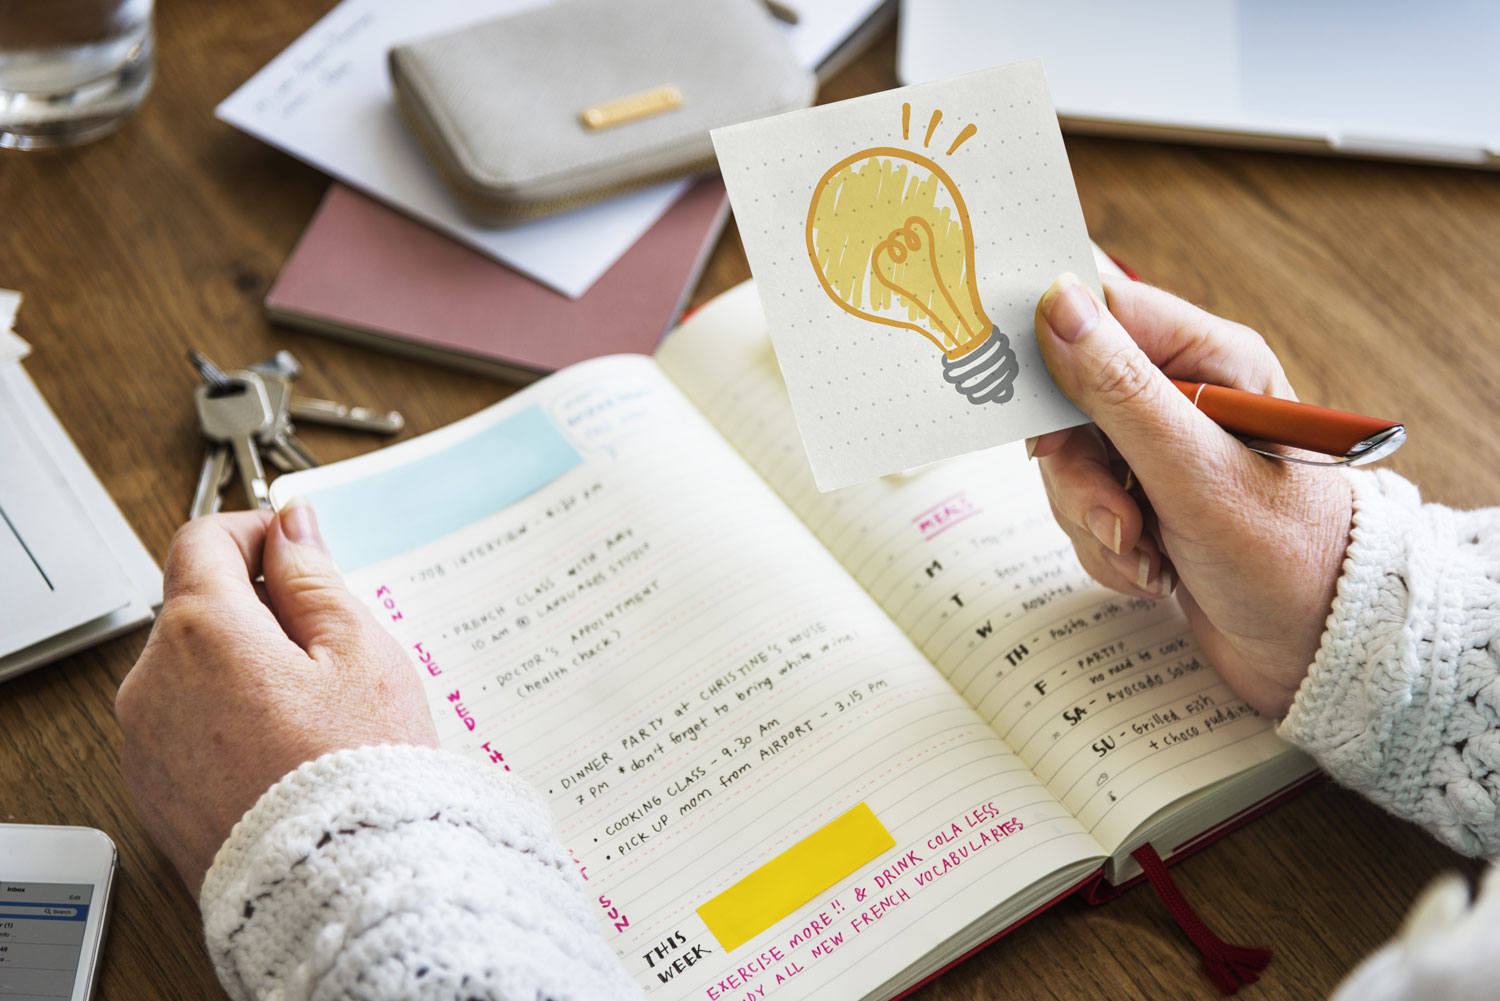 MON
TUE
WED
SUN
JOB INTERVIEW - 4.30 PM
• FRENCH CLASS WITH AMY
10 AM @ LANGUAGES STUDIO
• DOCTOR'S APPOINTMENT
(health check)
• DINNER PARTY at CHRISTINE'S HOUSE
7 PM * don't forget to bring white wine!
• COOKING CLASS - 9.30 AM
• PICK UP mom from AIRPORT - 3.15 PM
THIS
WEEK
EXERCISE MORE!! & DRINK COLA LESS
ALL NEW FRENCH VOCABULARIES
MEALS
M -
T -
+ Baked
W - Roasted
TH - Pasta with
F - PARTY!
no need to cook
SA - Avocado salad
SU - Grilled Fish
+ choco pudding
Inbox
Edit
Search